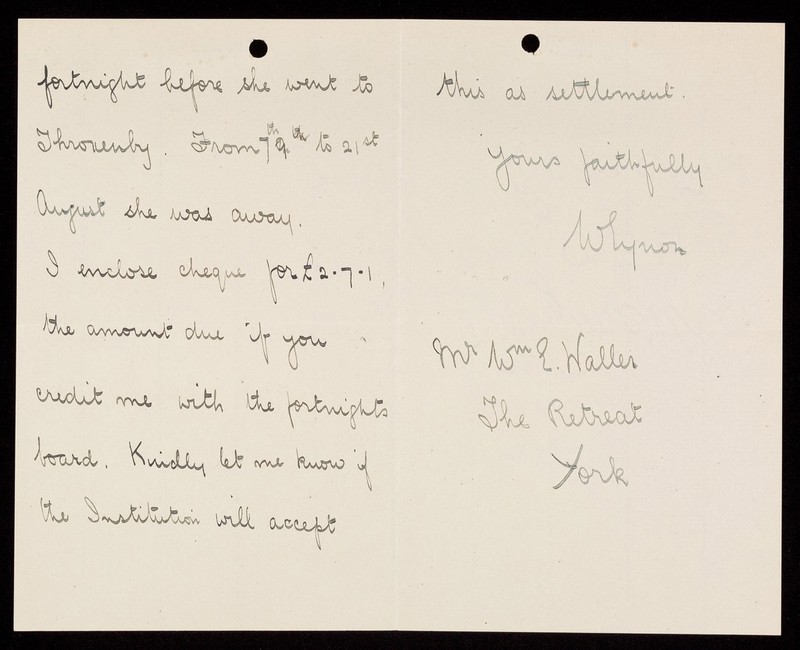 fortnight before she went to
Throxenby. From 7th 9th to 21st
August she was away.
I enclose cheque for £2.7.1,
the amount due if you
credit me with the fortnights
board. Kindly let me know if
the Institution will accept
this as settlement.
Yours faithfully
Mr Wm E. Waller
The Retreat
York